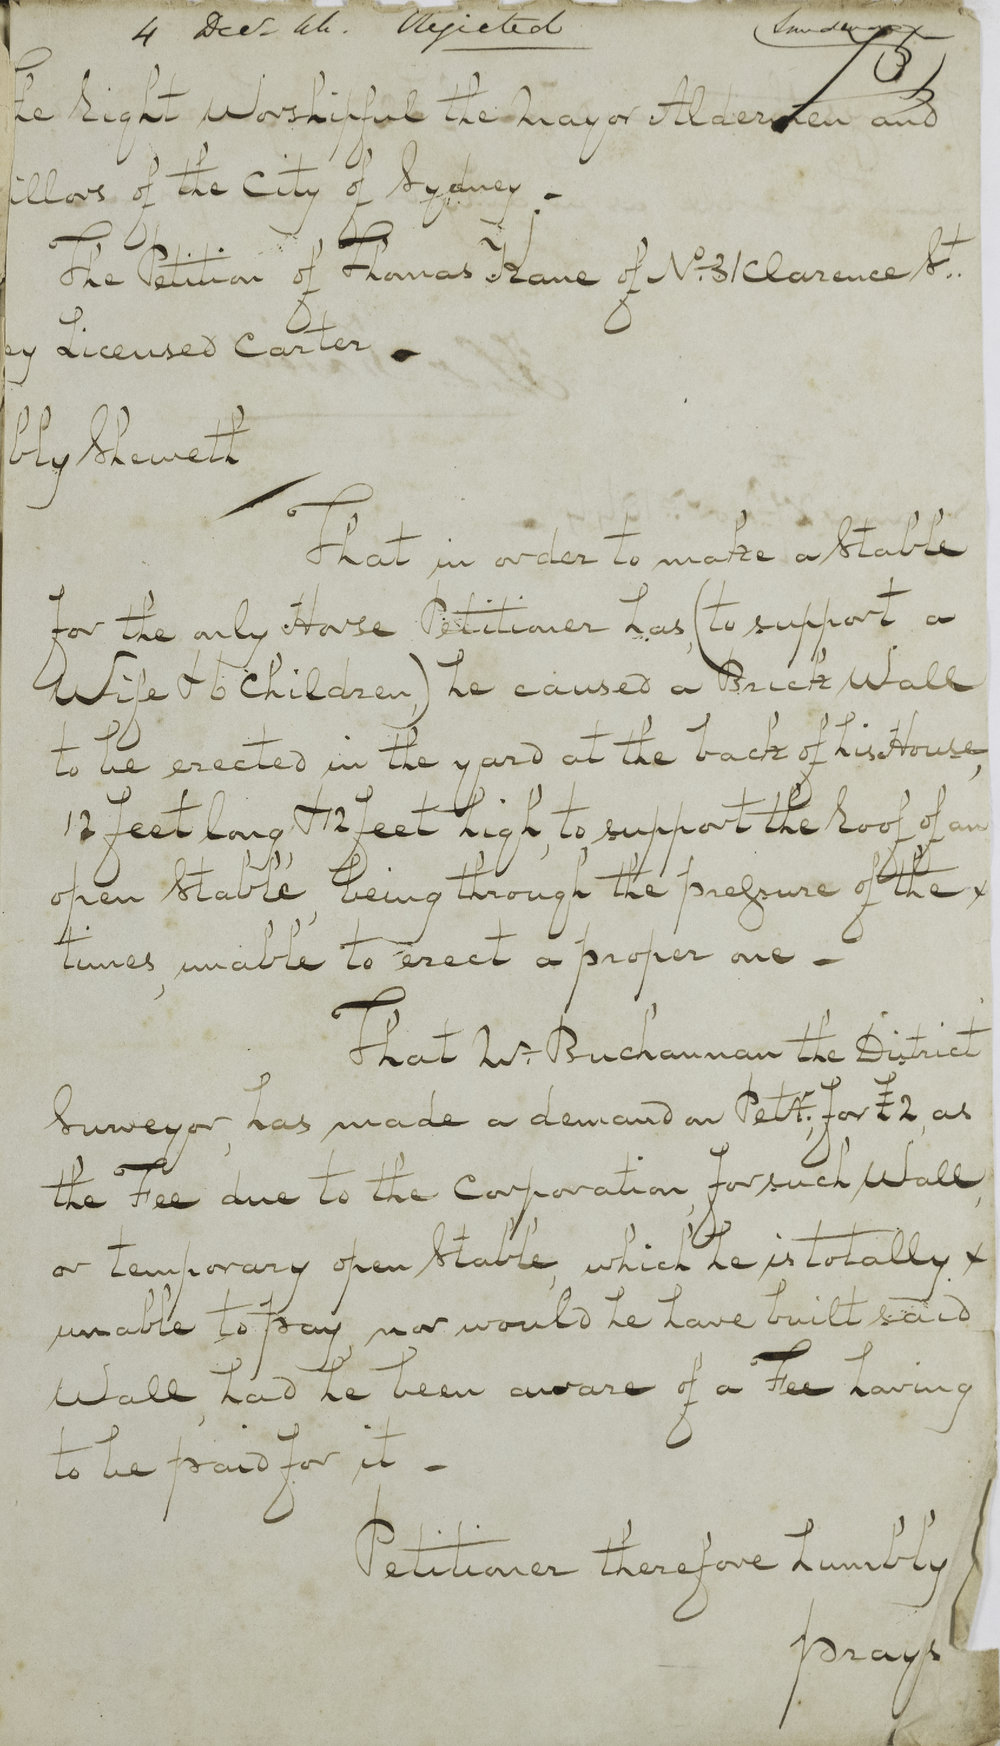 4 Decr 44. Rejected
5
he Right Worshipful the Mayor Aldermen and
illors of the City of Sydney. -
The Petition of Thomas Kane of No. 31 Clarence St.
ey Licensed Carter. -
bly Sheweth
That in order to make a Stable
for the only Horse Petitioner has, (to support a
Wife & 6 Children,) he caused a Brick Wall
to be erected in the yard at the back of his House,
12 feet long & 12 feet high, to support the Roof of an
open Stable, being through the pressure of the x
times, unable to erect a proper one -
That Mr. Buchannan the District
Surveyor, has made a demand on Petr., for £2, as
the Fee due to the Corporation, for such Wall,
or temporary open Stable, which he is totally x
unable to pay, nor would he have built said
Wall, had he been aware of a Fee having
to be paid for it -
Petitioner therefore humbly
prays